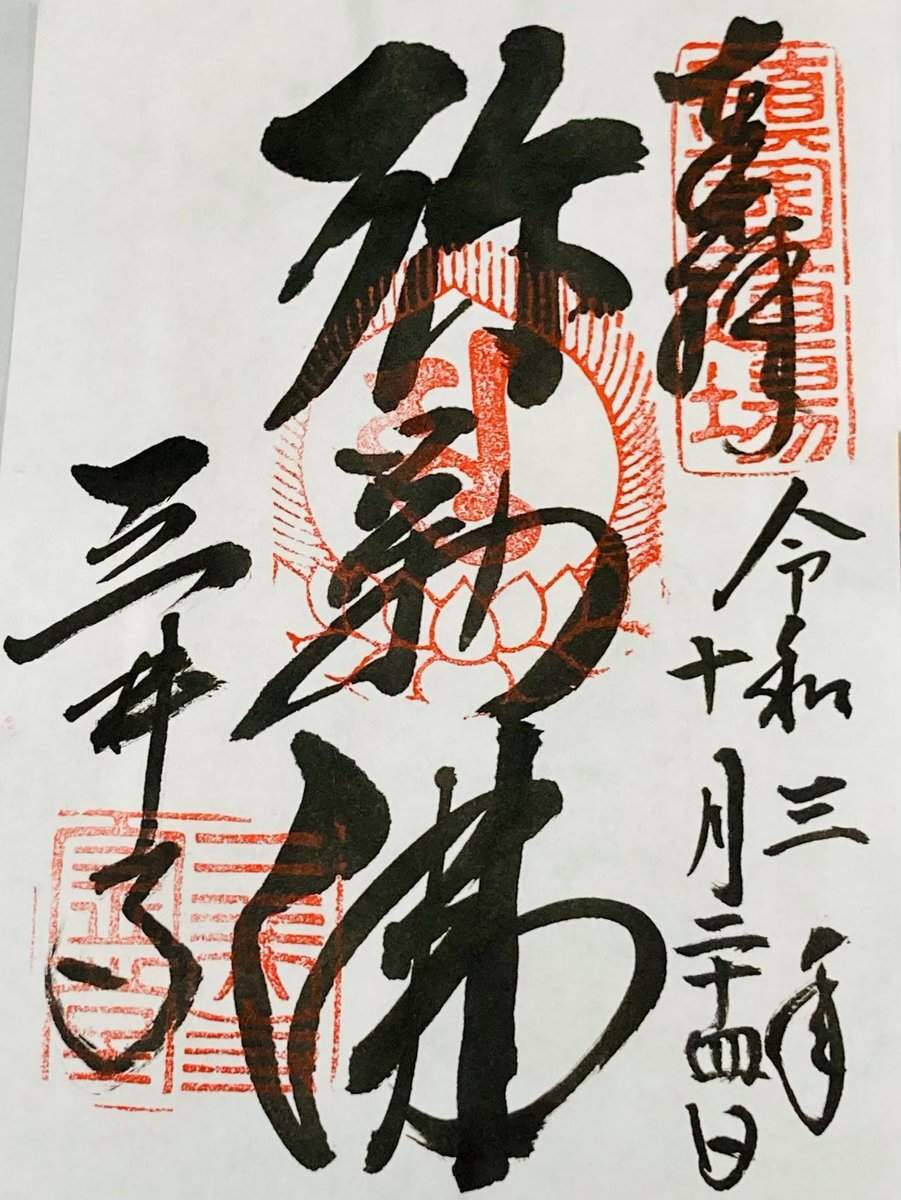 奉拝
令和三年
十月二十四日
弥勒佛
三井寺